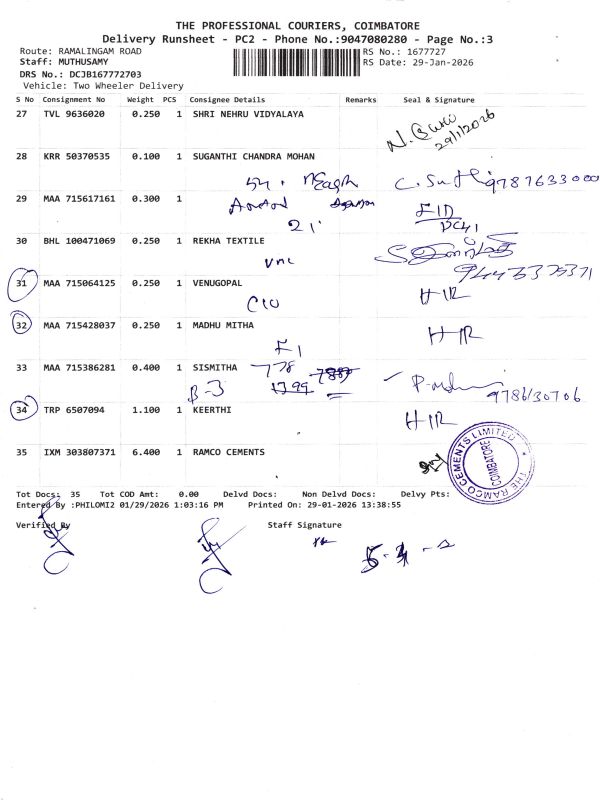 THE PROFESSIONAL COURIERS, COIMBATORE
Delivery Runsheet - PC2 - Phone No.:9047080280 - Page No.:3
Route: RAMALINGAM ROAD RS No.: 1677727
Staff: MUTHUSAMY RS Date: 29-Jan-2026
DRS No.: DCJB167772703
Vehicle: Two Wheeler Delivery
S No Consignment No Weight PCS Consignee Details Remarks Seal & Signature
27 TVL 9636020 0.250 1 SHRI NEHRU VIDYALAYA
29/1/2026
28 KRR 50370535 0.100 1 SUGANTHI CHANDRA MOHAN
9787633000
29 MAA 715617161 0.300 1
21
30 BHL 100471069 0.250 1 REKHA TEXTILE
31 MAA 715064125 0.250 1 VENUGOPAL
C10 HIR
32 MAA 715428037 0.250 1 MADHU MITHA
F1 HIR
33 MAA 715386281 0.400 1 SISMITHA 778
B-3 9786130706
34 TRP 6507094 1.100 1 KEERTHI HIR
35 IXM 303807371 6.400 1 RAMCO CEMENTS
THE RAMCO CEMENTS LIMITED
COIMBATORE
Tot Docs: 35 Tot COD Amt: 0.00 Delvd Docs: Non Delvd Docs: Delvy Pts:
Entered By :PHILOMI2 01/29/2026 1:03:16 PM Printed On: 29-01-2026 13:38:55
Verified By Staff Signature